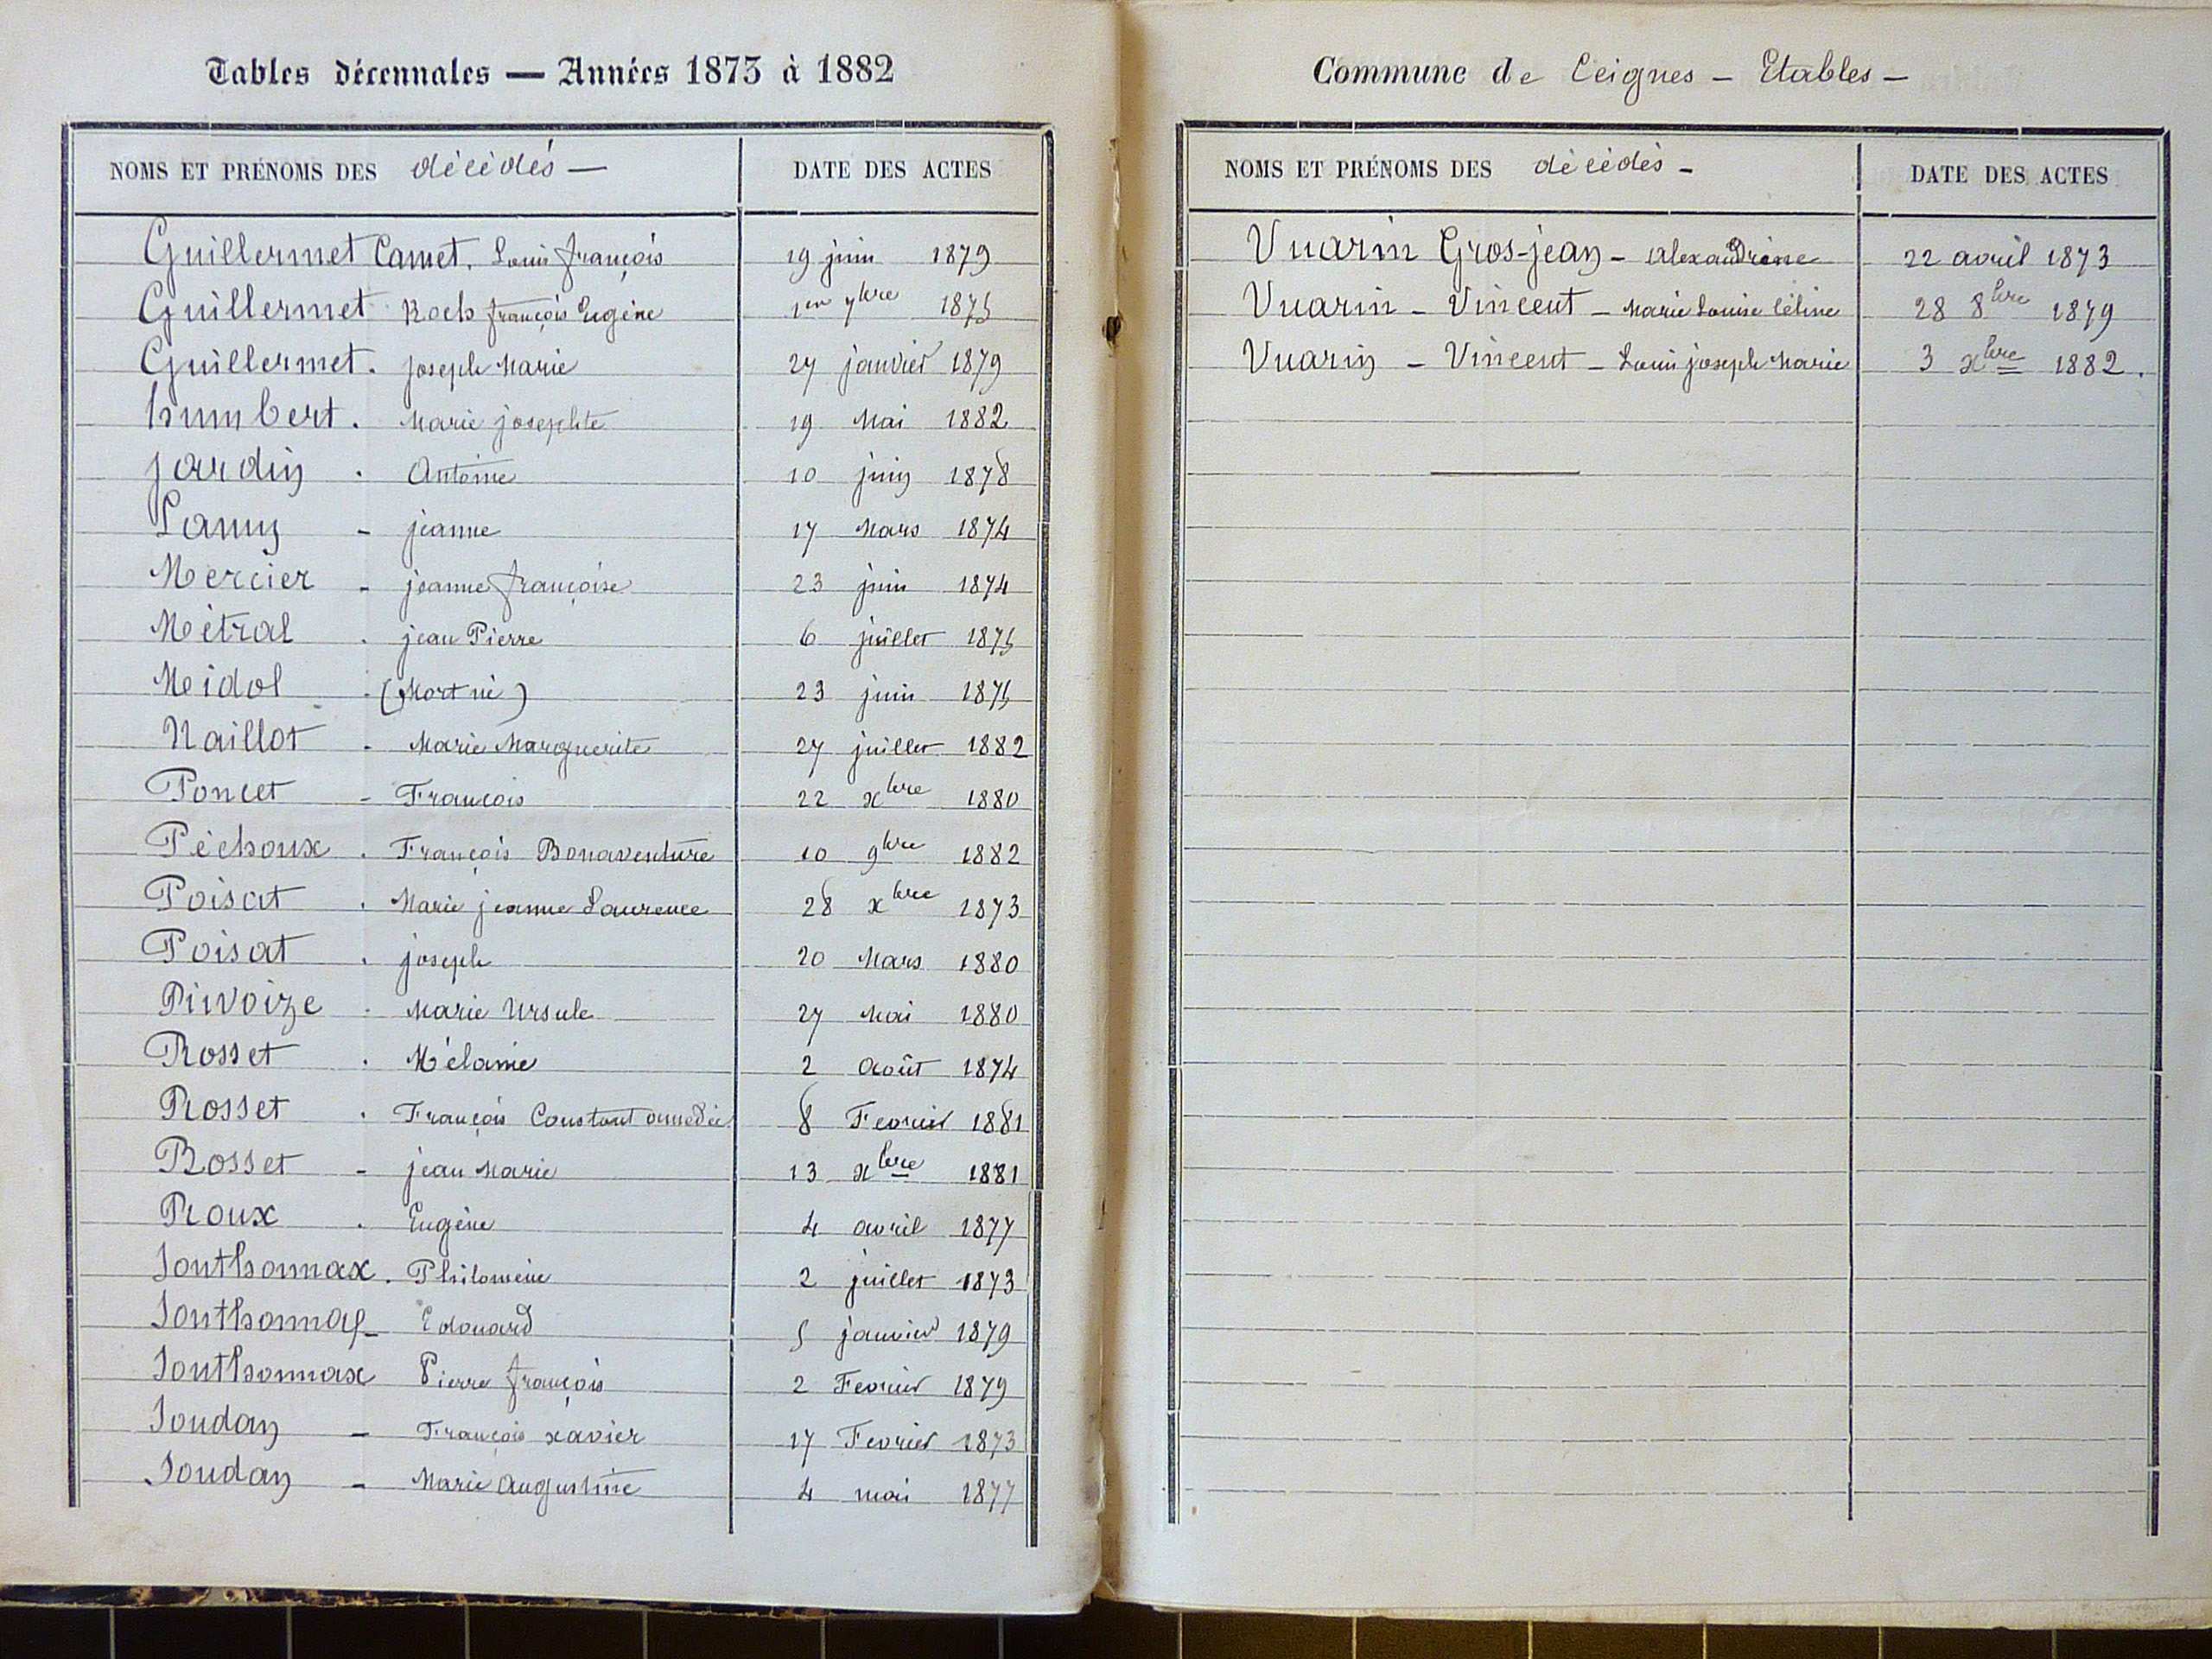 Tables décennales — Années 1873 à 1882
NOMS ET PRÉNOMS DES décédés — DATE DES ACTES
Guillermet Camet. Louis françois 19 juin 1879
Guillermet Roch françois Eugène 1er 7bre 1875
Guillermet. joseph Marie 27 janvier 1879
humbert. Marie josephte 19 Mai 1882
jardin . Antoine 10 juin 1878
Lanny - jeanne 17 Mars 1874
Mercier - jeanne françoise 23 juin 1874
Mètral . jean Pierre 6 juillet 1875
Midol . (Mort né) 23 juin 1875
Naillot - Marie Marguerite 27 juillet 1882
Poncet - François 22 xbre 1880
Pèchoux . François Bonaventure 10 9bre 1882
Poisat . Marie jeanne Laurence 28 xbre 1873
Poisat . joseph 20 Mars 1880
Pivoize . Marie Ursule 27 Mai 1880
Rosset . Mélanie 2 août 1874
Rosset . François Constant amedée 8 Fevrier 1881
Rosset - jean Marie 13 xbre 1881
Roux . Eugène 4 avril 1877
Sonthonnax . Philomène 2 juillet 1873
Sonthonnax - Edouard 5 janvier 1879
Sonthonnax Pierre françois 2 Fevrier 1879
Soudan - François xavier 17 Fevrier 1873
Soudan - Marie augustine 4 mai 1877
Commune de Ceignes - Etables -
NOMS ET PRÉNOMS DES décédés - DATE DES ACTES
Vuarin Gros-jean - alexandrine 22 avril 1873
Vuarin - Vincent - Marie Louise Céline 28 8bre 1879
Vuarin - Vincent - Louis joseph Marie 3 xbre 1882.